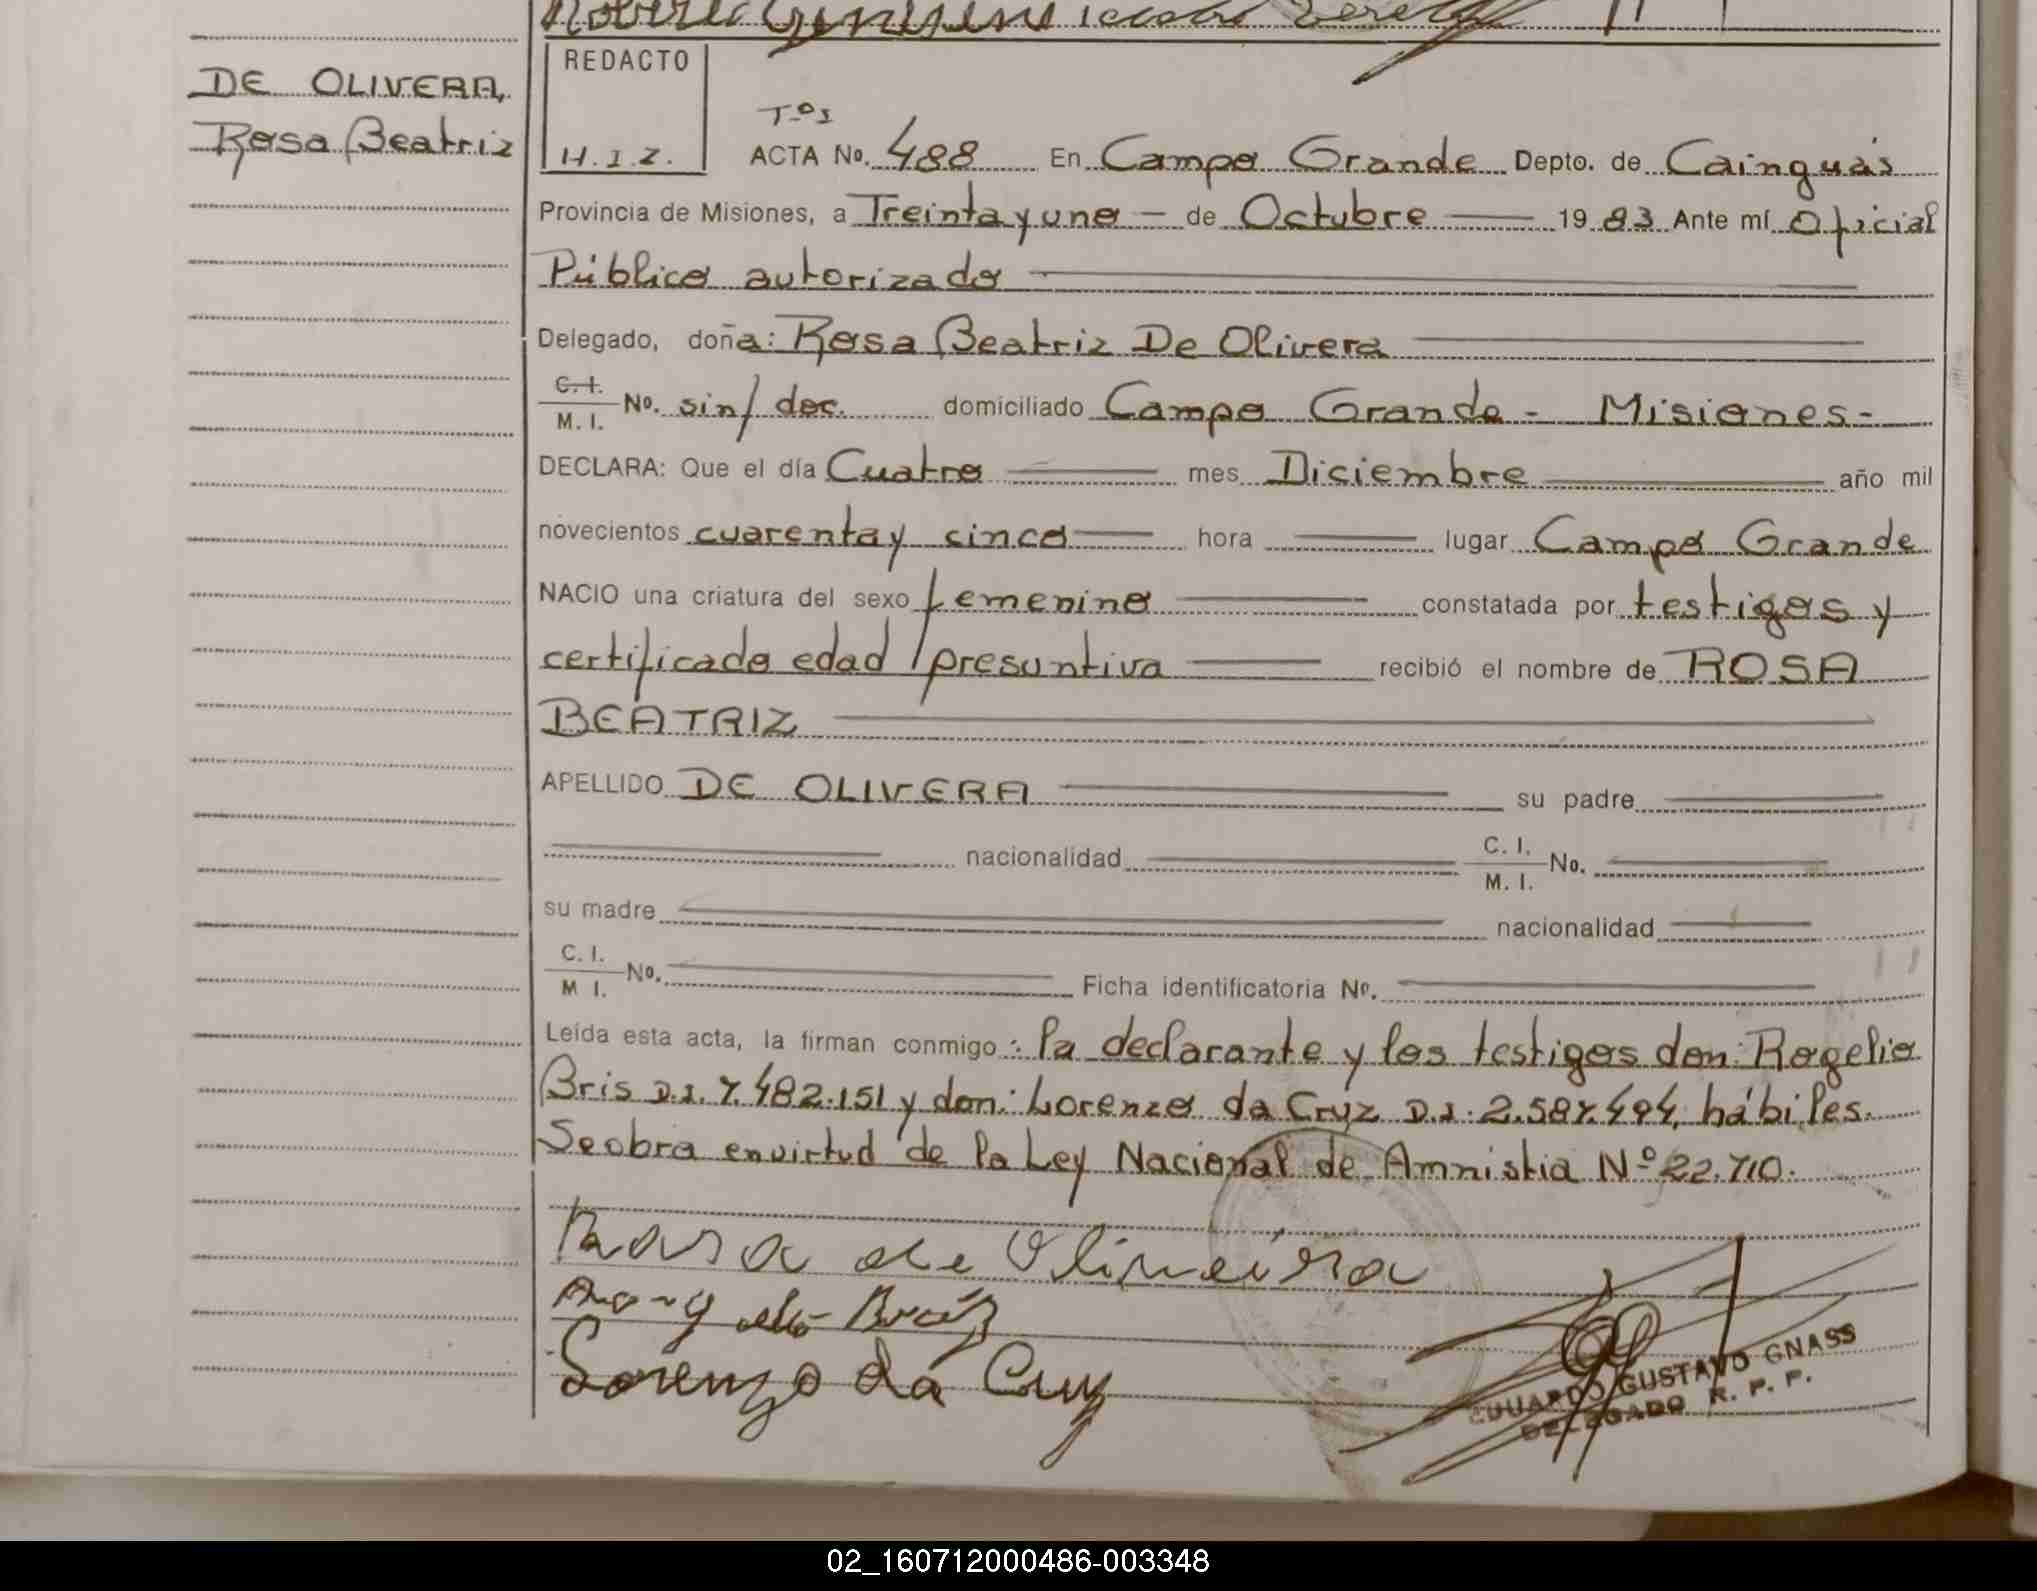 DE OLIVERA,
Rosa Beatriz
REDACTO
H.I.Z.
Tº I
ACTA Nº. 488 En Campo Grande Depto. de Cainguás
Provincia de Misiones, a Treinta y uno — de Octubre — 19 83 Ante mí Oficial
Público autorizado
Delegado, doña: Rosa Beatriz De Olivera
C.I. M.I. Nº. sin/doc. domiciliado Campo Grande - Misiones-
DECLARA: Que el día Cuatro — mes Diciembre — año mil
novecientos cuarenta y cinco — hora — lugar Campo Grande
NACIO una criatura del sexo femenino — constatada por testigos y
certificado edad presuntiva — recibió el nombre de ROSA
BEATRIZ
APELLIDO DE OLIVERA — su padre —
— nacionalidad — C. I. M. I. Nº. —
su madre — nacionalidad —
C. I. M I. Nº. — Ficha identificatoria Nº. —
Leída esta acta, la firman conmigo: la declarante y los testigos don: Rogelio
Bris D.I. 7.482.151 y don: Lorenzo da Cruz D.I. 2.587.494, hábiles.
Se obra en virtud de la Ley Nacional de Amnistia Nº 22.710.
Rosa de Oliveira
Lorenzo da Cruz
EDUARDO GUSTAVO GNASS
DELEGADO R. P. P.
02_160712000486-003348